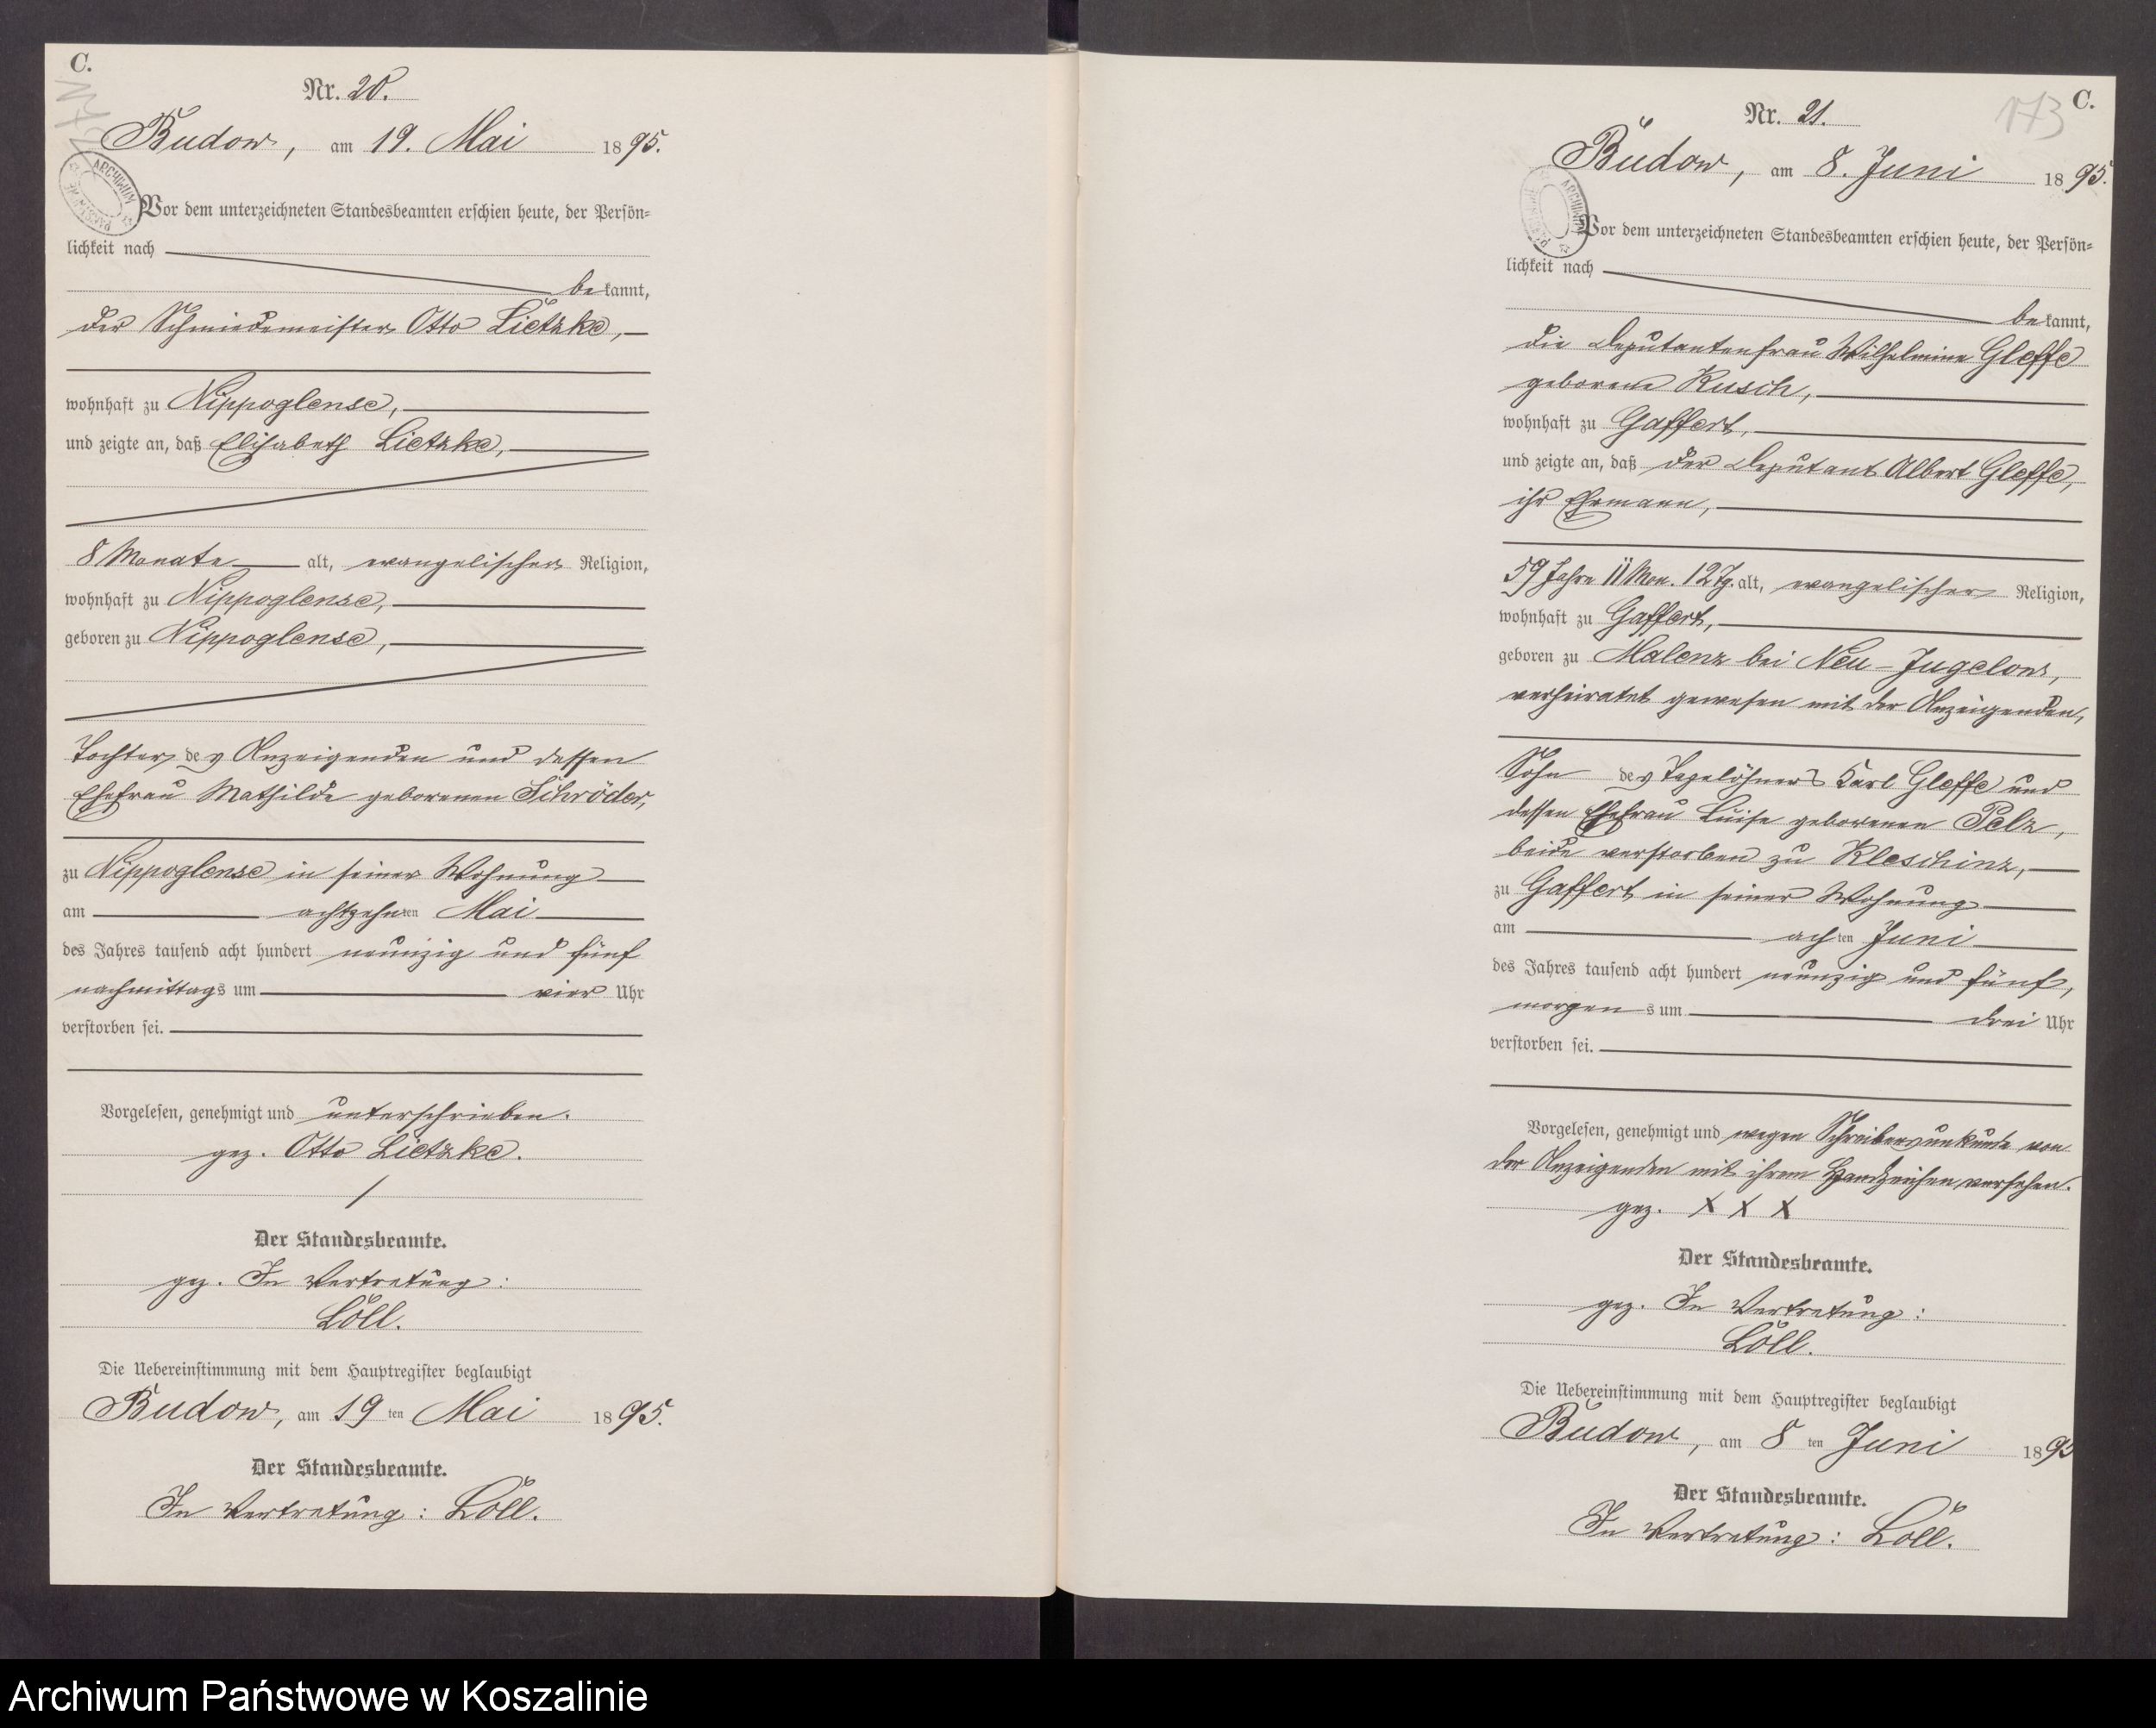 C.
Nr. 20.
Budow, am 19. Mai 1895.
Vor dem unterzeichneten Standesbeamten erschien heute, der Persön-
lichkeit nach
bekannt,
der Schmiedemeister Otto Lietzke,
wohnhaft zu Nippoglense,
und zeigte an, daß Elisabeth Lietzke,
8 Monate alt, evangelischer Religion,
wohnhaft zu Nippoglense,
geboren zu Nippoglense,
Tochter des Anzeigenden und dessen
Ehefrau Mathilde geborenen Schröder,
zu Nippoglense in seiner Wohnung
am achtzehnten Mai
des Jahres tausend acht hundert neunzig und fünf
nachmittags um vier Uhr
verstorben sei.
Vorgelesen, genehmigt und unterschrieben.
gez. Otto Lietzke.
Der Standesbeamte.
gez. In Vertretung:
Löll.
Die Uebereinstimmung mit dem Hauptregister beglaubigt
Budow, am 19ten Mai 1895.
Der Standesbeamte.
In Vertretung: Löll.
C.
173
Nr. 21.
Budow, am 8. Juni 1895.
Vor dem unterzeichneten Standesbeamten erschien heute, der Persön-
lichkeit nach
bekannt,
die Deputantenfrau Wilhelmine Gleffe
geborene Rusch,
wohnhaft zu Gaffert,
und zeigte an, daß der Deputant Albert Gleffe,
ihr Ehemann,
59 Jahre 11 Mon. 12 Tg. alt, evangelischer Religion,
wohnhaft zu Gaffert,
geboren zu Malenz bei Neu-Jugelow,
verheiratet gewesen mit der Anzeigenden,
Sohn des Tagelöhners Karl Gleffe und
dessen Ehefrau Luise geborenen Pelz,
beide verstorben zu Kleschinz,
zu Gaffert in seiner Wohnung
am achten Juni
des Jahres tausend acht hundert neunzig und fünf,
morgens um drei Uhr
verstorben sei.
Vorgelesen, genehmigt und wegen Schreibensunkunde von
der Anzeigenden mit ihrem Handzeichen versehen.
gez. X X X
Der Standesbeamte.
gez. In Vertretung:
Löll.
Die Uebereinstimmung mit dem Hauptregister beglaubigt
Budow, am 8ten Juni 1895
Der Standesbeamte.
In Vertretung: Löll.
Archiwum Państwowe w Koszalinie